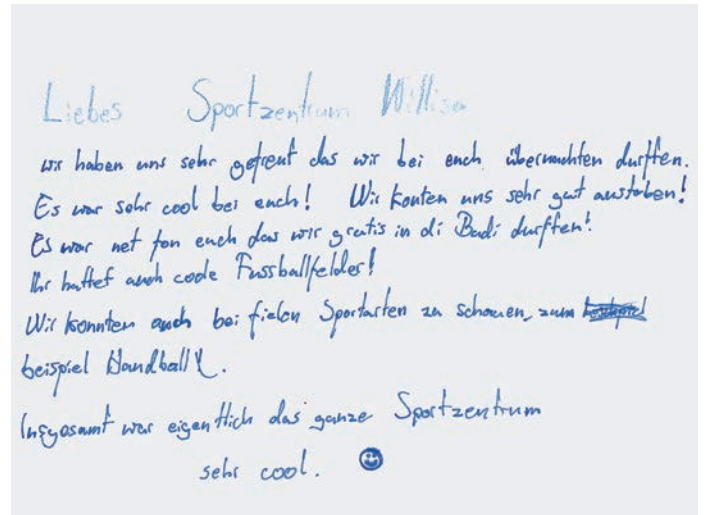 Liebes Sportzentrum Willisau
wir haben uns sehr gefreut das wir bei euch übernachten durften.
Es war sehr cool bei euch! Wir konten uns sehr gut austoben!
Es war net fon euch das wir gratis in di Badi durften!
Ihr hattet auch coole Fussballfelder!
Wir konnten auch bei fielen Sportarten zu schauen, zum
beispiel Handball.
Insgesamt war eigentlich das ganze Sportzentrum
sehr cool. ☺